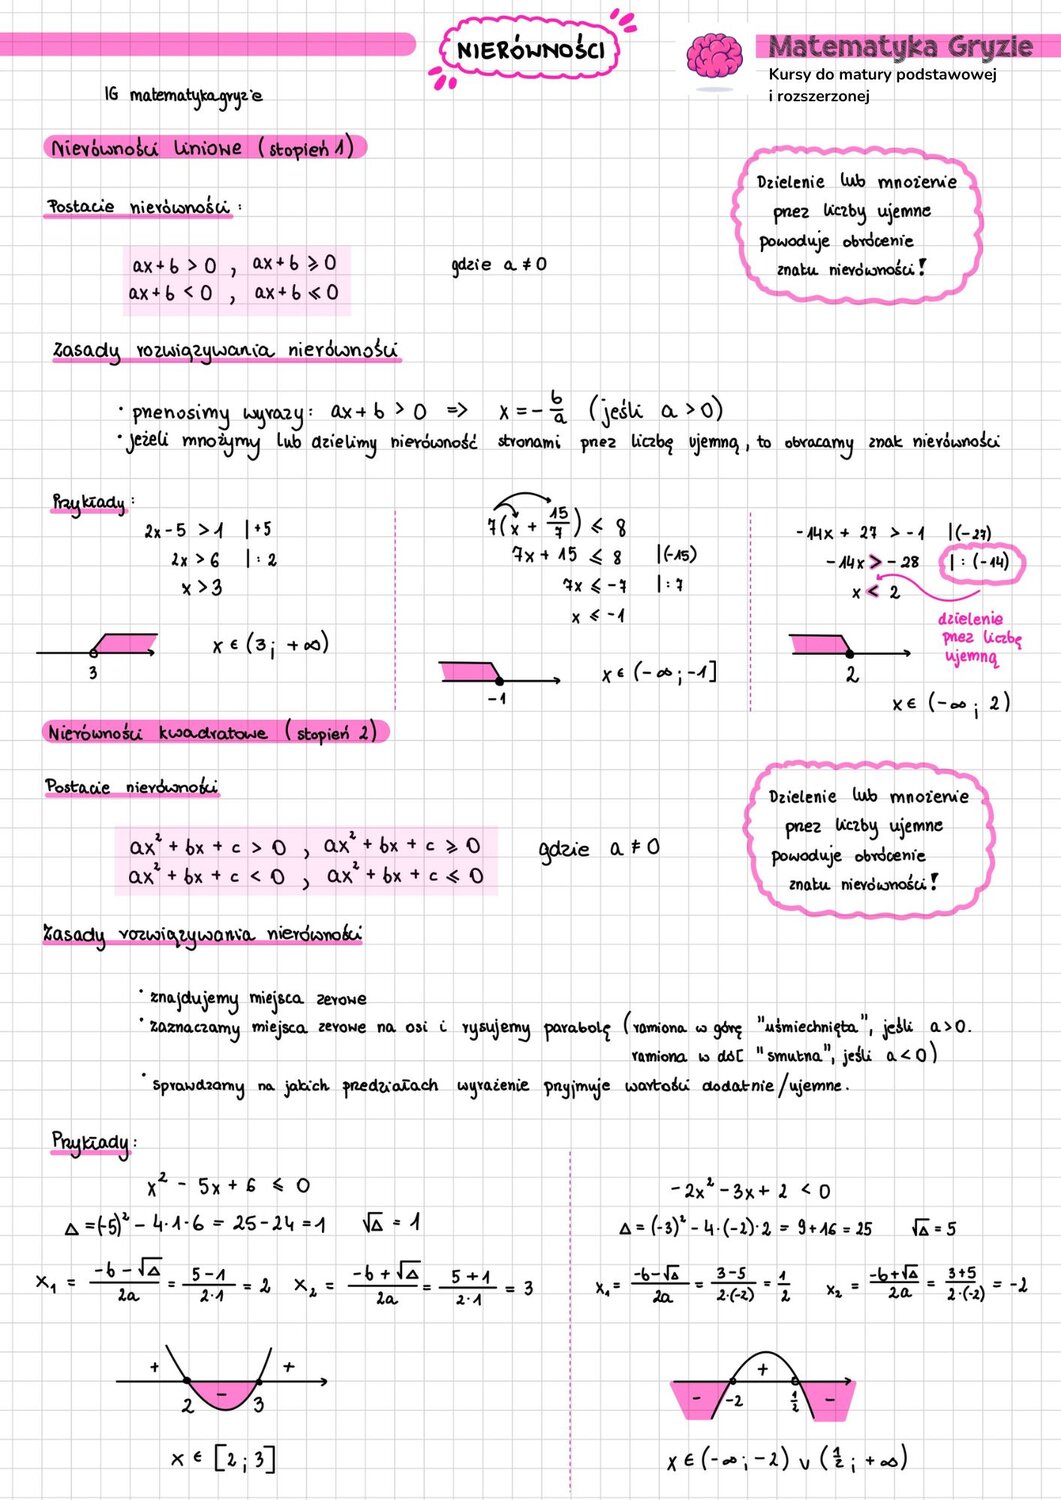 NIERÓWNOŚCI
Matematyka Gryzie
Kursy do matury podstawowej
i rozszerzonej
IG matematyka.gryzie
Nierówności liniowe (stopień 1)
Dzielenie lub mnożenie
przez liczby ujemne
powoduje obrócenie
znaku nierówności!
Postacie nierówności:
ax+b > 0 , ax+b ⩾ 0
ax+b < 0 , ax+b ⩽ 0
gdzie a ≠ 0
Zasady rozwiązywania nierówności
· przenosimy wyrazy: ax+b > 0 => x = - b/a (jeśli a > 0)
· jeżeli mnożymy lub dzielimy nierówność stronami przez liczbę ujemną, to obracamy znak nierówności
Przykłady:
2x - 5 > 1 | +5
2x > 6 | : 2
x > 3
3
x ∈ (3; +∞)
7(x + 15/7) ⩽ 8
7x + 15 ⩽ 8 |(-15)
7x ⩽ -7 | : 7
x ⩽ -1
-1
x ∈ (-∞; -1]
-14x + 27 > -1 |(-27)
-14x > -28 | : (-14)
x < 2
dzielenie
przez liczbę
ujemną
2
x ∈ (-∞; 2)
Nierówności kwadratowe (stopień 2)
Postacie nierówności
ax² + bx + c > 0 , ax² + bx + c ⩾ 0
ax² + bx + c < 0 , ax² + bx + c ⩽ 0
gdzie a ≠ 0
Dzielenie lub mnożenie
przez liczby ujemne
powoduje obrócenie
znaku nierówności!
Zasady rozwiązywania nierówności
· znajdujemy miejsca zerowe
· zaznaczamy miejsca zerowe na osi i rysujemy parabolę (ramiona w górę "uśmiechnięta", jeśli a>0.
ramiona w dół "smutna", jeśli a<0)
· sprawdzamy na jakich przedziałach wyrażenie przyjmuje wartości dodatnie/ujemne.
Przykłady:
x² - 5x + 6 ⩽ 0
Δ = (-5)² - 4·1·6 = 25 - 24 = 1 √Δ = 1
x₁ = (-b - √Δ)/2a = (5-1)/(2·1) = 2 x₂ = (-b + √Δ)/2a = (5+1)/(2·1) = 3
+ - +
2 3
x ∈ [2; 3]
-2x² - 3x + 2 < 0
Δ = (-3)² - 4·(-2)·2 = 9 + 16 = 25 √Δ = 5
x₁ = (-b-√Δ)/2a = (3-5)/(2·(-2)) = 1/2 x₂ = (-b+√Δ)/2a = (3+5)/(2·(-2)) = -2
- + -
-2 1/2
x ∈ (-∞; -2) ∨ (1/2; +∞)